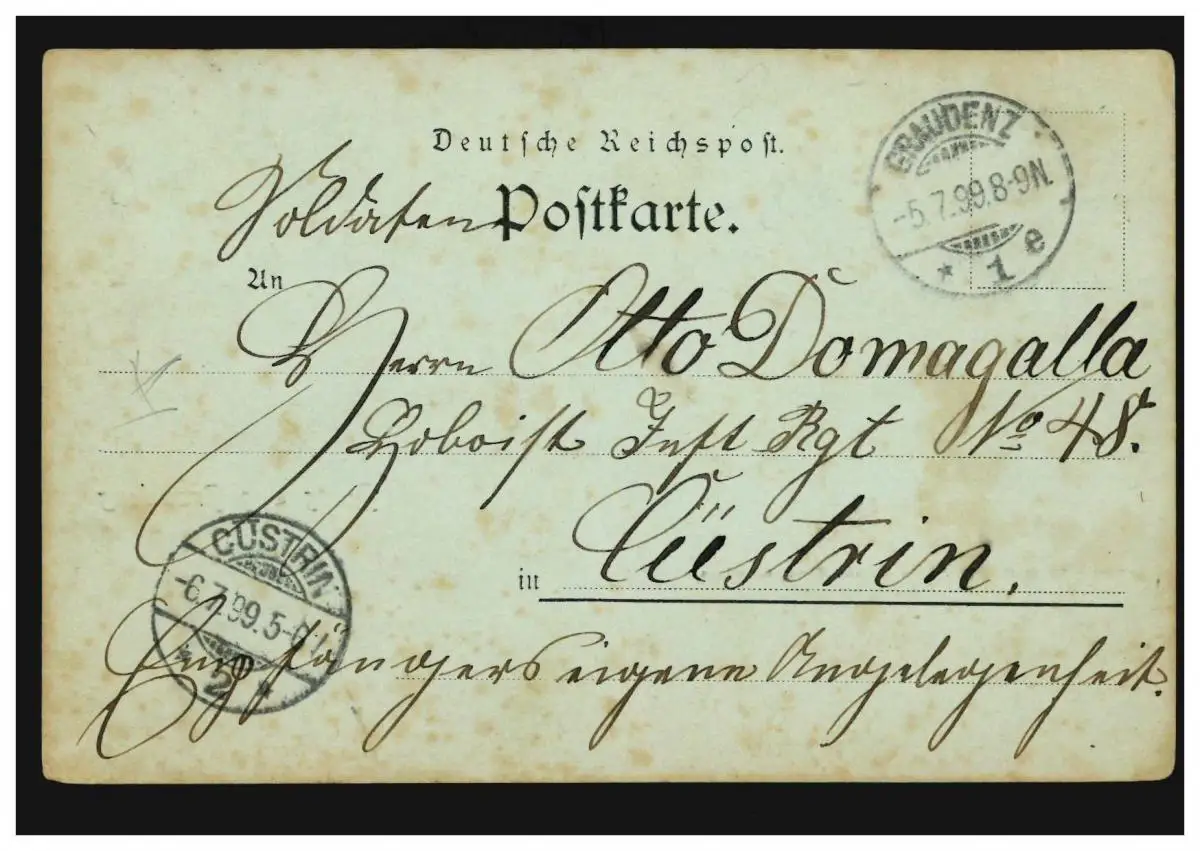 Deutsche Reichspost.
Soldaten Postkarte.
GRAUDENZ
-5.7.99.8-9N.
* 1 e
An
Herrn Otto Domagalla
Hoboist Inft Rgt No 48.
in Cüstrin.
CÜSTRIN
-6.7.99.5-6
2 *
Empfängers eigene Angelegenheit.